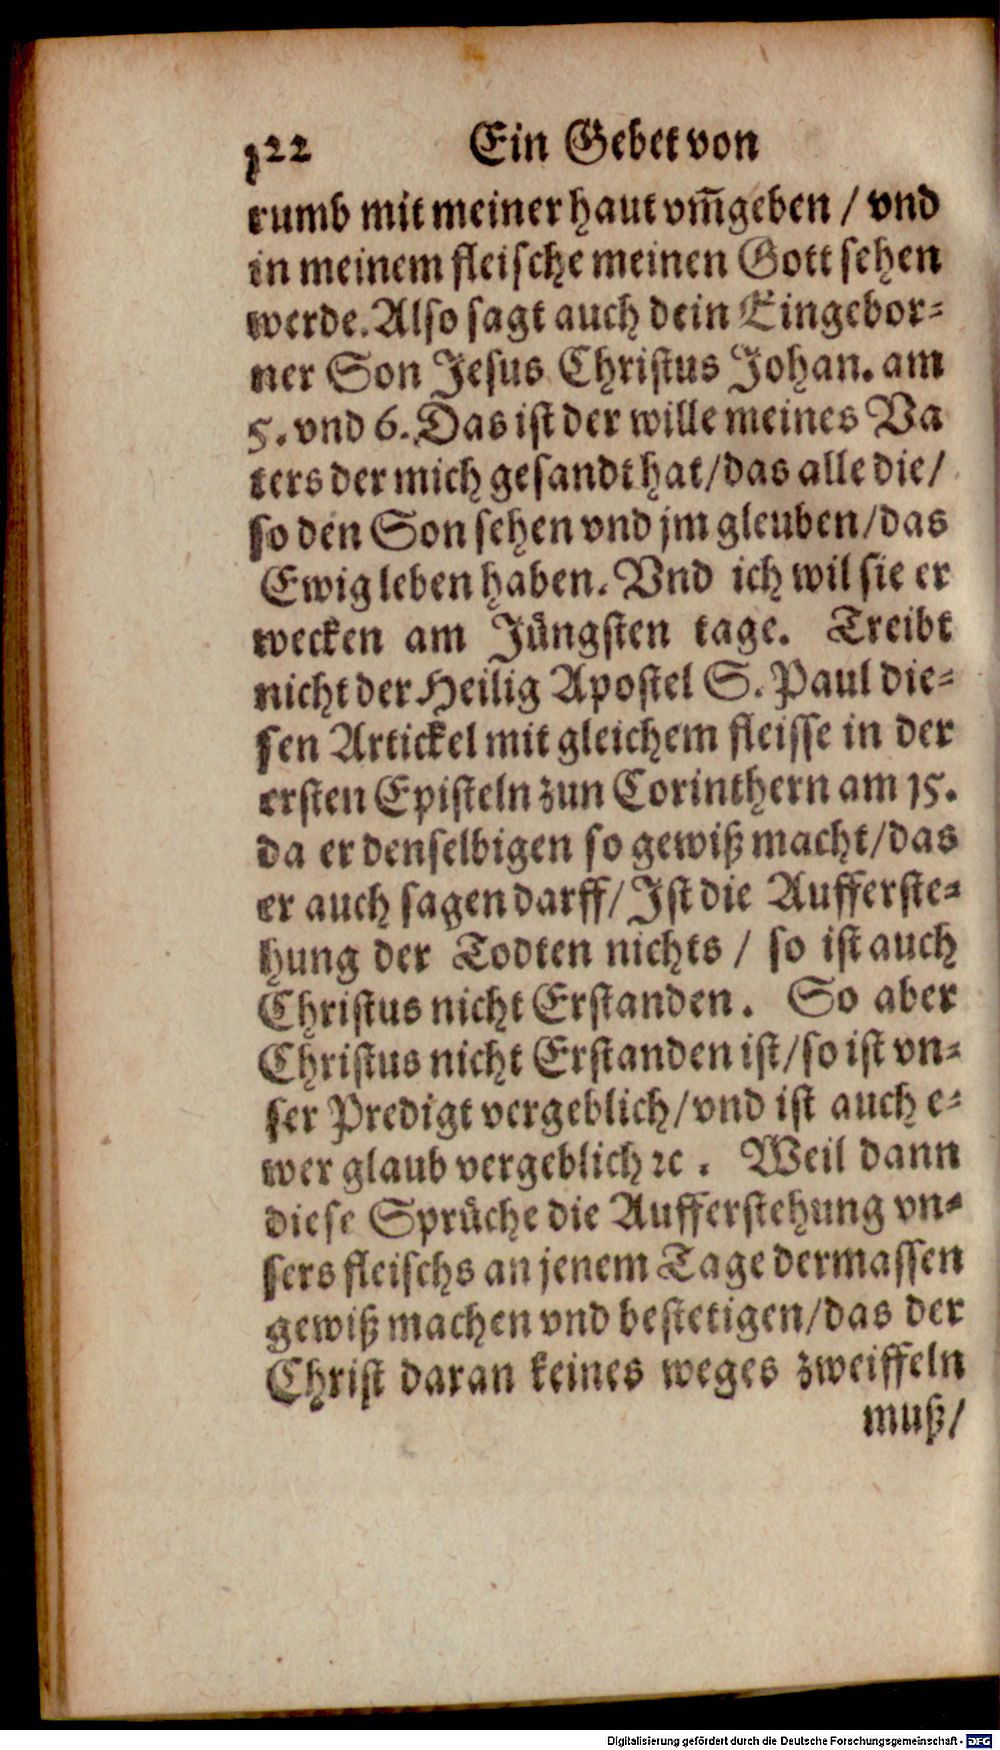 122 Ein Gebet von
rumb mit meiner haut vm̃geben / vnd
in meinem fleische meinen Gott sehen
werde. Also sagt auch dein Eingebor-
ner Son Jesus Christus Johan. am
5. vnd 6. Das ist der wille meines Va
ters der mich gesandt hat/das alle die/
so den Son sehen vnd jm gleuben/das
Ewig leben haben. Vnd ich wil sie er
wecken am Jüngsten tage. Treibt
nicht der Heilig Apostel S. Paul die-
sen Artickel mit gleichem fleisse in der
ersten Episteln zun Corinthern am 15.
da er denselbigen so gewiß macht/das
er auch sagen darff/Ist die Aufferste-
hung der Todten nichts / so ist auch
Christus nicht Erstanden. So aber
Christus nicht Erstanden ist/so ist vn-
ser Predigt vergeblich/vnd ist auch e-
wer glaub vergeblich ꝛc. Weil dann
diese Sprüche die Aufferstehung vn-
sers fleischs an jenem Tage dermassen
gewiß machen vnd bestetigen/das der
Christ daran keines weges zweiffeln
muß/
Digitalisierung gefördert durch die Deutsche Forschungsgemeinschaft - DFG